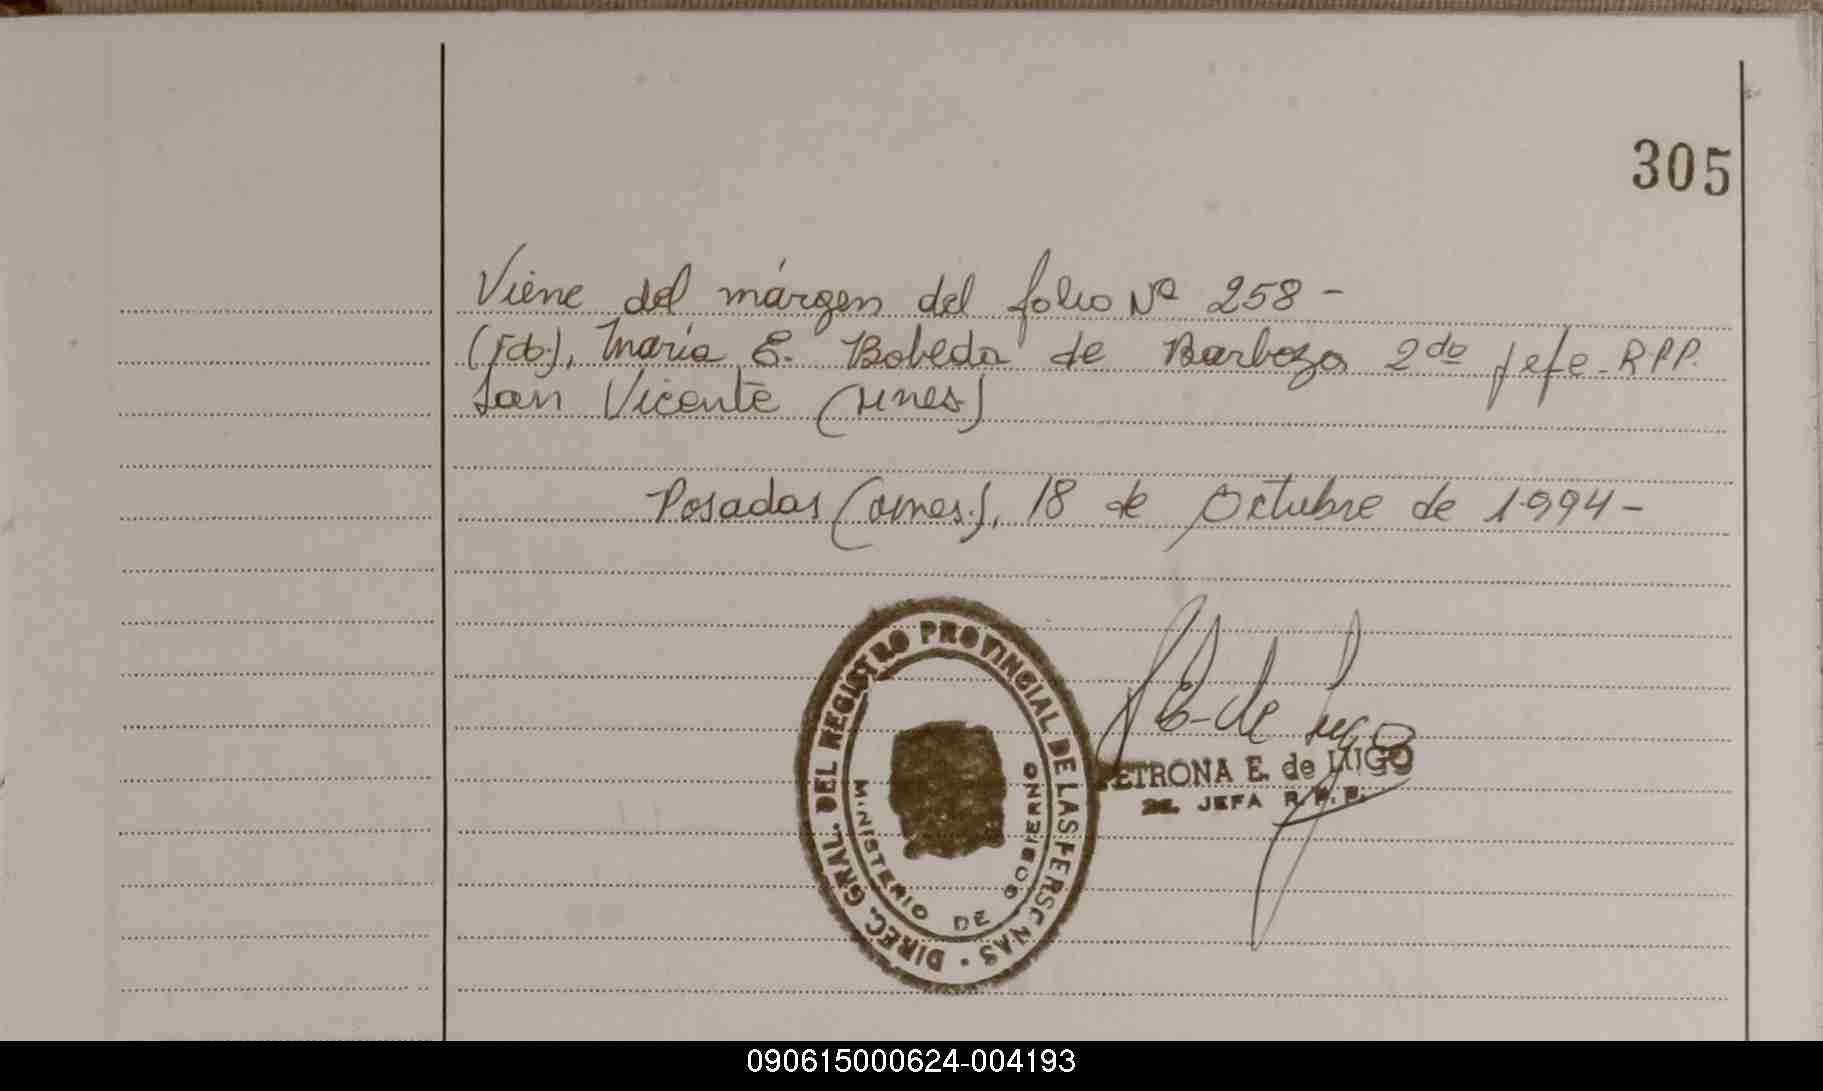 305
Viene del márgen del folio Nº 258 -
(fdo.), María E. Bobeda de Barboza 2do Jefe - RPP.
San Vicente (Mnes)
Posadas (Mnes.), 18 de Octubre de 1.994 -
DIREC. GRAL. DEL REGISTRO PROVINCIAL DE LAS PERSONAS
MINISTERIO DE GOBIERNO
E. de Lugo
PETRONA E. de LUGO
JEFA R.P.P.
090615000624-004193